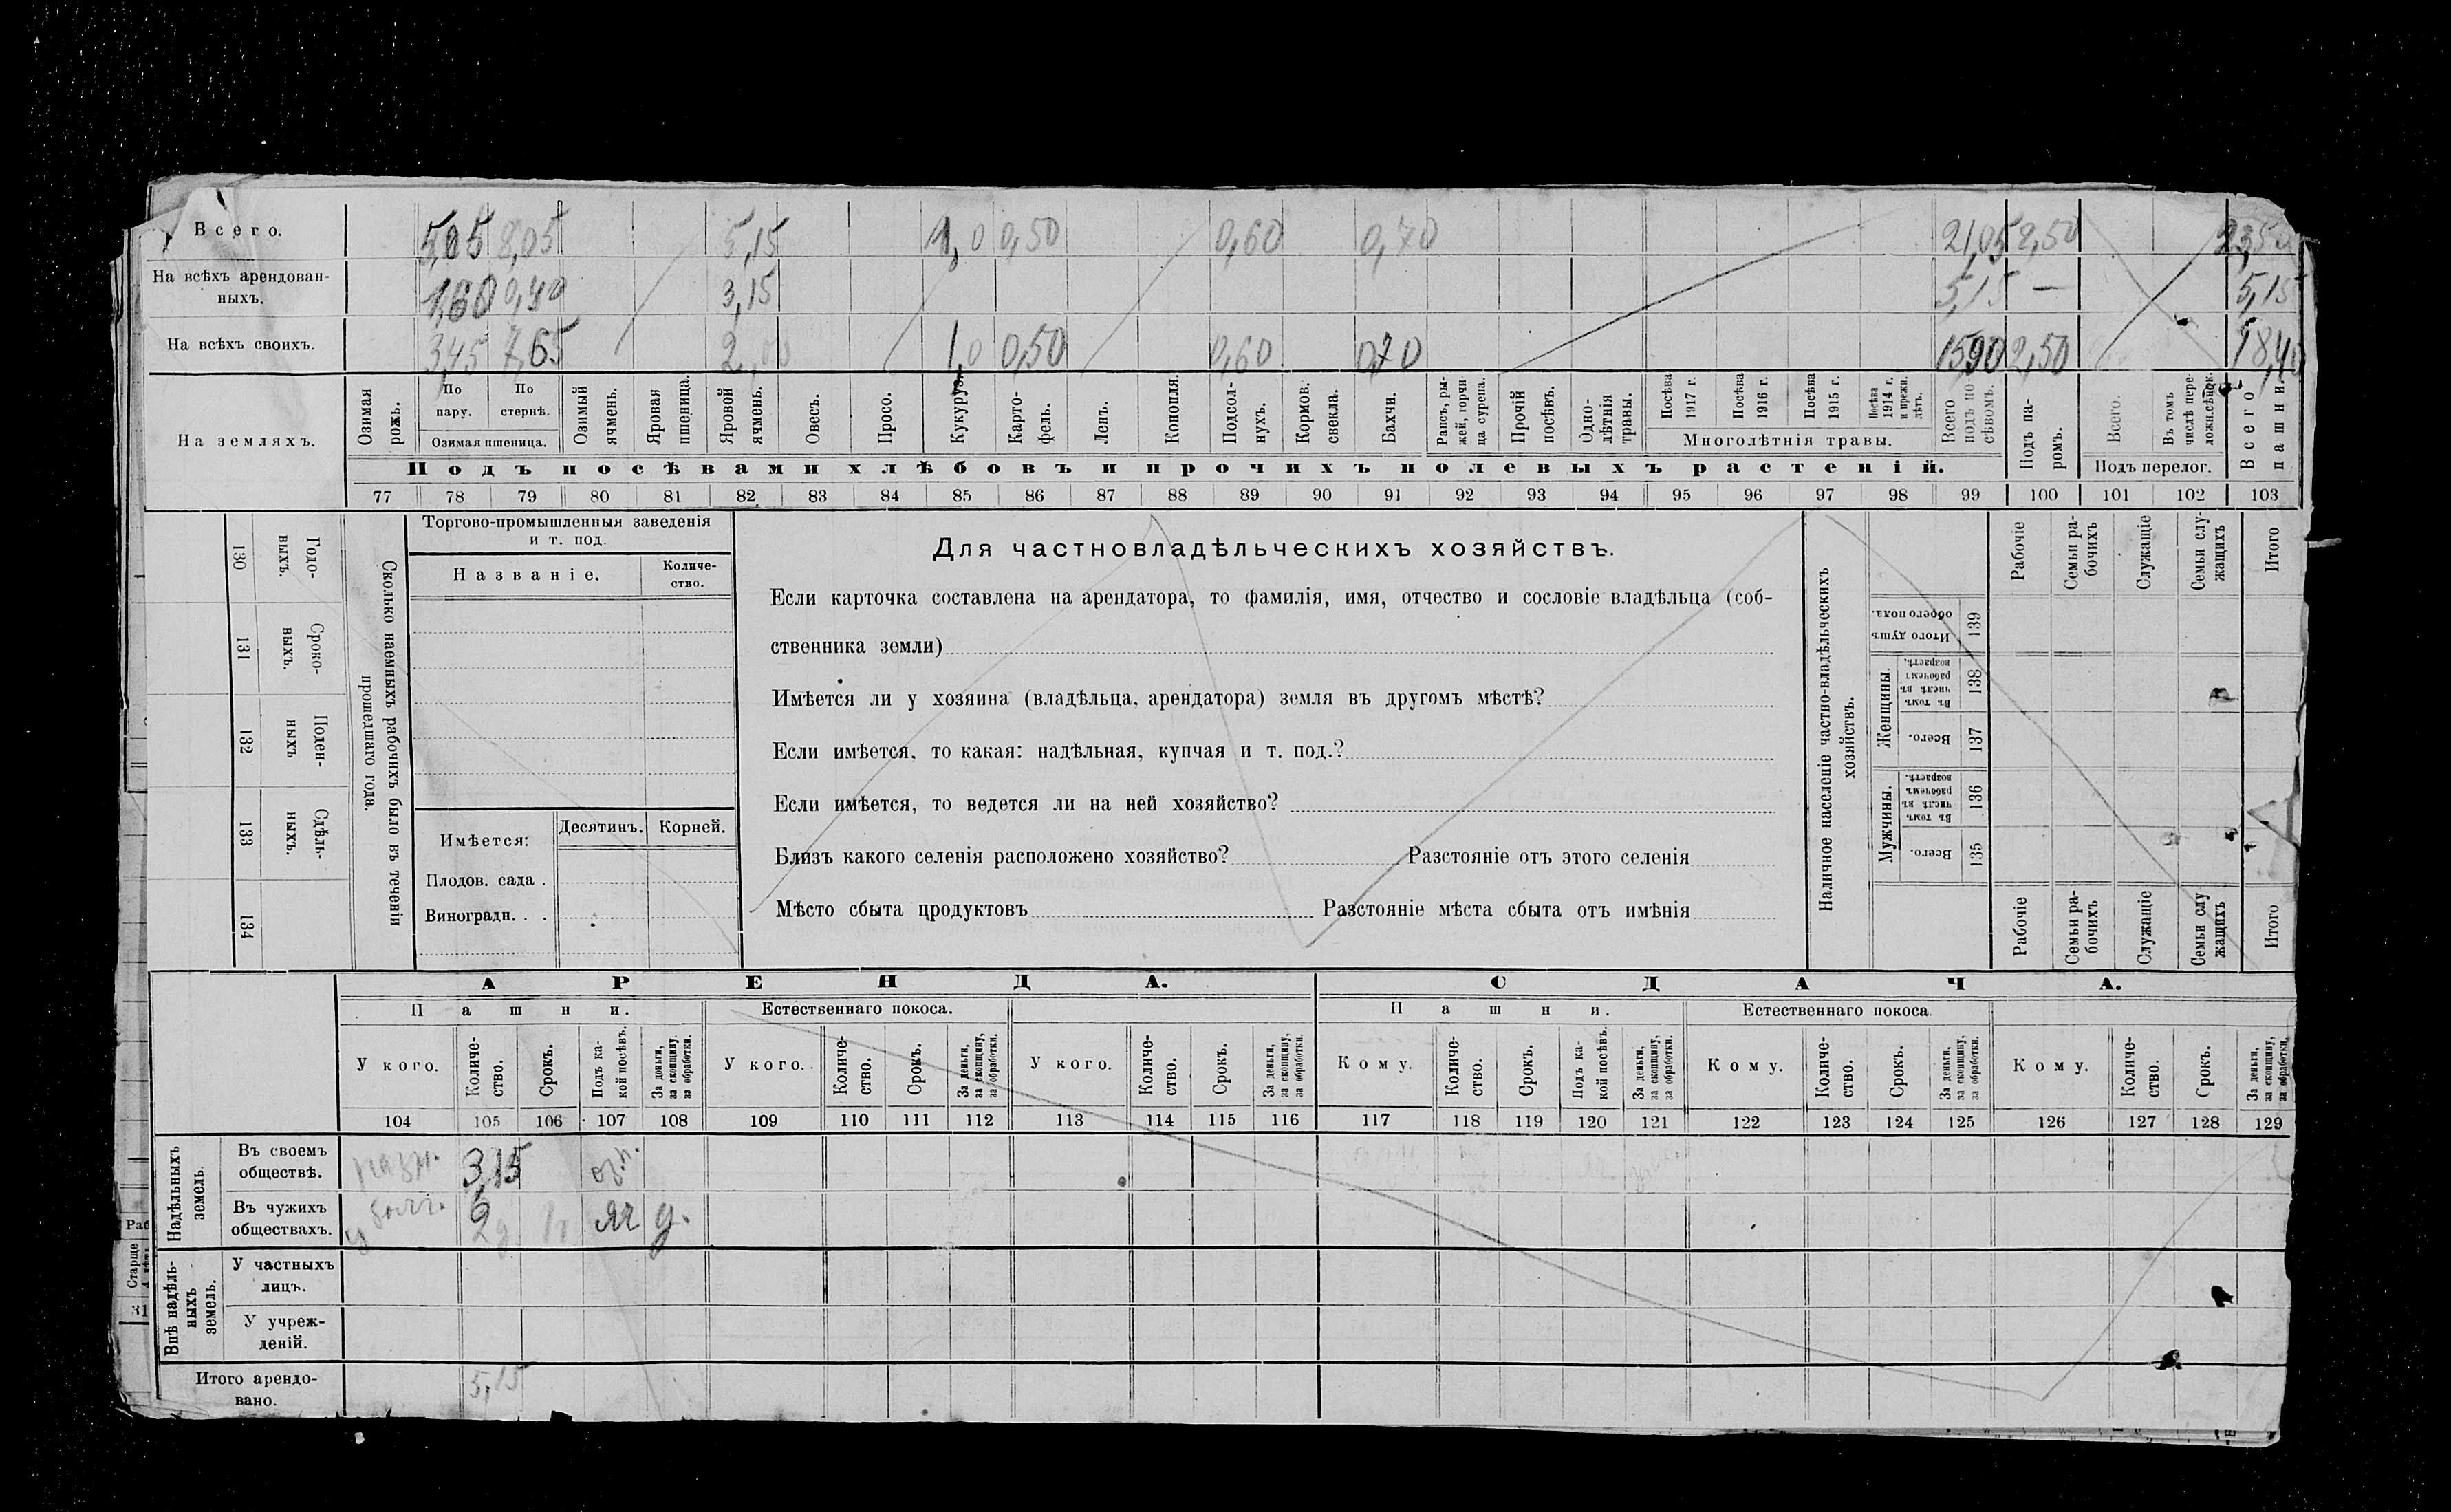 Всего. 5,05 8,05 5,15 1,0 0,50 0,60 0,70 21,05 2,50
На всѣхъ арендован-
ныхъ. 1,60 3,15 5,15 — 5,15
На всѣхъ своихъ. 3,45 7,65 2,00 1,0 0,50 0,60 0,70 1590 2,50
На земляхъ.
Озимая рожь.
По пару.
По стернѣ.
Озимая пшеница.
Озимый ячмень.
Яровая пшеница.
Яровой ячмень.
Овесъ.
Просо.
Кукуруза.
Карто-
фель.
Ленъ.
Конопля.
Подсол-
нухъ.
Кормов. свекла.
Бахчи.
Рапсъ, ры-
жей, горчи
ца сурепа.
Прочій посѣвъ.
Одно-
лѣтнія травы.
Посѣва 1917 г.
Посѣва 1916 г.
Посѣва 1915 г.
Посѣва 1914 г. и прежн. лѣтъ.
Многолѣтнія травы.
Всего подъ по-
сѣвомъ.
Подъ па-
ромъ.
Всего.
Въ томъ числѣ пере-
ложн.сѣнок.
Подъ перелог.
Всего пашни.
Подъ посѣвами хлѣбовъ и прочихъ полевыхъ растеній.
77 78 79 80 81 82 83 84 85 86 87 88 89 90 91 92 93 94 95 96 97 98 99 100 101 102 103
130 Годо-
ныхъ.
131 Сроко-
выхъ.
132 Поден-
ныхъ
133 Сдѣль-
ныхъ.
134
Сколько наемныхъ рабочихъ было въ теченіи
прошедшаго года.
Торгово-промышленныя заведенія
и т. под.
Названіе.
Количе-
ство.
Имѣется:
Десятинъ.
Корней.
Плодов. сада .
Виноградн. . .
Для частновладѣльческихъ хозяйствъ.
Если карточка составлена на арендатора, то фамилія, имя, отчество и сословіе владѣльца (соб-
ственника земли)
Имѣется ли у хозяина (владѣльца, арендатора) земля въ другомъ мѣстѣ?
Если имѣется, то какая: надѣльная, купчая и т. под.?
Если имѣется, то ведется ли на ней хозяйство?
Близъ какого селенія расположено хозяйство? Разстояніе отъ этого селенія
Мѣсто сбыта продуктовъ Разстояніе мѣста сбыта отъ имѣнія
Наличное населеніе частно-владѣльческихъ
хозяйствъ.
Итого душъ обоего пола. 139
Женщины.
Въ томъ числѣ въ рабочемъ возрастѣ. 138
Всего. 137
Мужчины.
Въ томъ числѣ въ рабочемъ возрастѣ. 136
Всего. 135
Рабочіе
Семьи ра-
бочихъ
Служащіе
Семьи слу-
жащихъ
Итого
Рабочіе
Семьи ра-
бочихъ
Служащіе
Семьи слу
жащихъ
Итого
АРЕНДА.
СДАЧА.
Пашни.
Естественнаго покоса.
Пашни.
Естественнаго покоса.
У кого.
Количе-
ство.
Срокъ.
Подъ ка-
кой посѣвъ.
За деньги,
за скопщину,
за обработки.
У кого.
Количе-
ство.
Срокъ.
За деньги,
за скопщину,
за обработки.
У кого.
Количе-
ство.
Срокъ.
За деньги,
за скопщину,
за обработки.
Кому.
Количе-
ство.
Срокъ.
Подъ ка-
кой посѣвъ.
За деньги,
за скопщину,
за обработки.
Кому.
Количе-
ство.
Срокъ.
За деньги,
за скопщину,
за обработки.
Кому.
Количе-
ство.
Срокъ.
За деньги,
за скопщину,
за обработки.
104 105 106 107 108 109 110 111 112 113 114 115 116 117 118 119 120 121 122 123 124 125 126 127 128 129
Надѣльныхъ
земель.
Въ своемъ
обществѣ. 3,15
Въ чужихъ
обществахъ. 2 яч д.
Внѣ надѣль-
ныхъ
земель.
У частныхъ
лицъ.
У учреж-
деній.
Итого арендо-
вано. 5,15
Раб
Старше
31